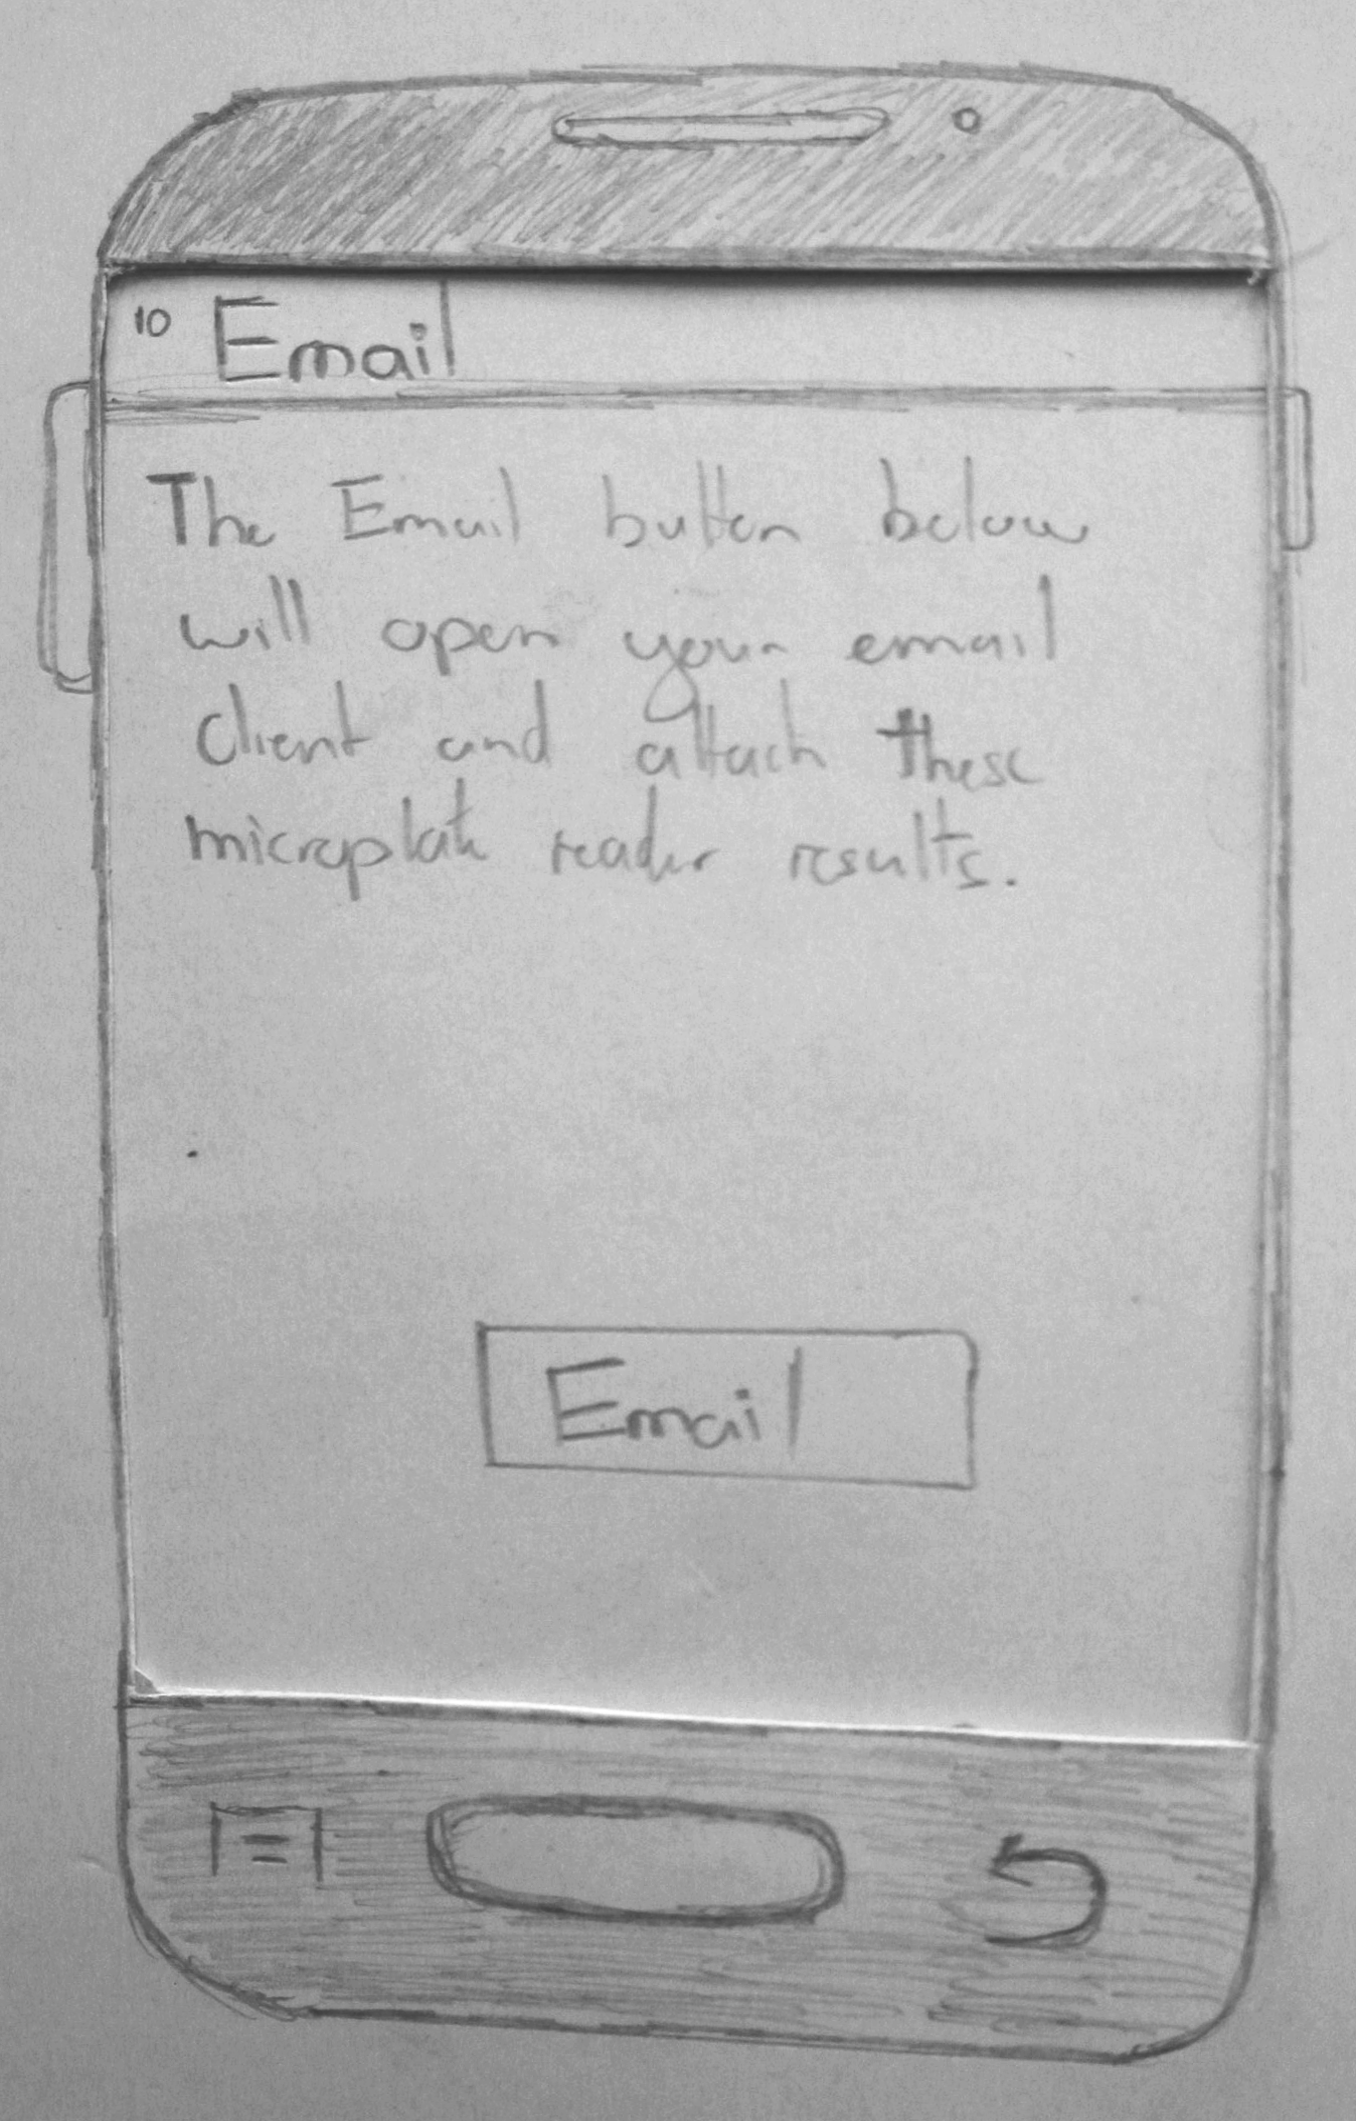 10 Email
The Email button below
will open your email
client and attach these
microplate reader results.
Email